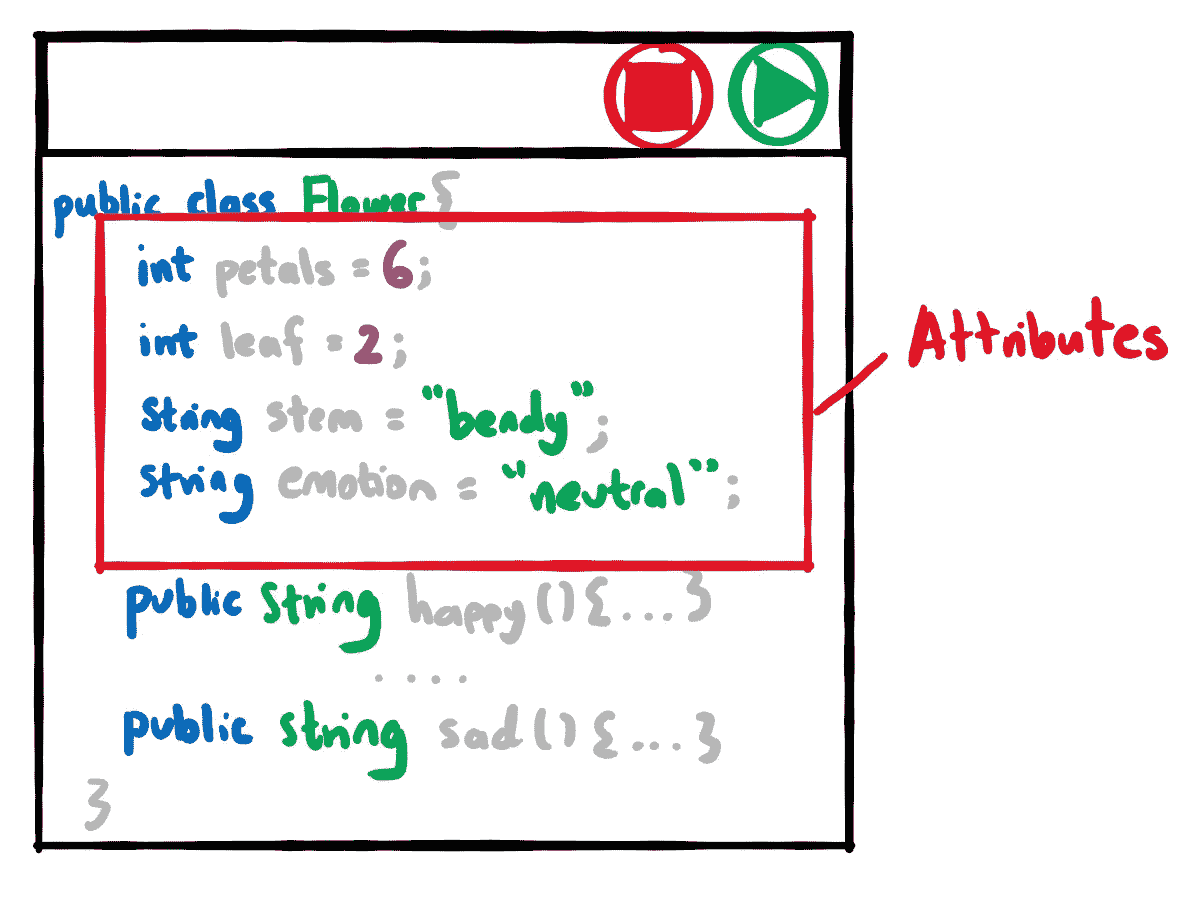 public class Flower{
int petals = 6;
int leaf = 2;
String stem = "bendy";
String emotion = "neutral";
Attributes
public String happy(){...}
....
public string sad(){...}
}